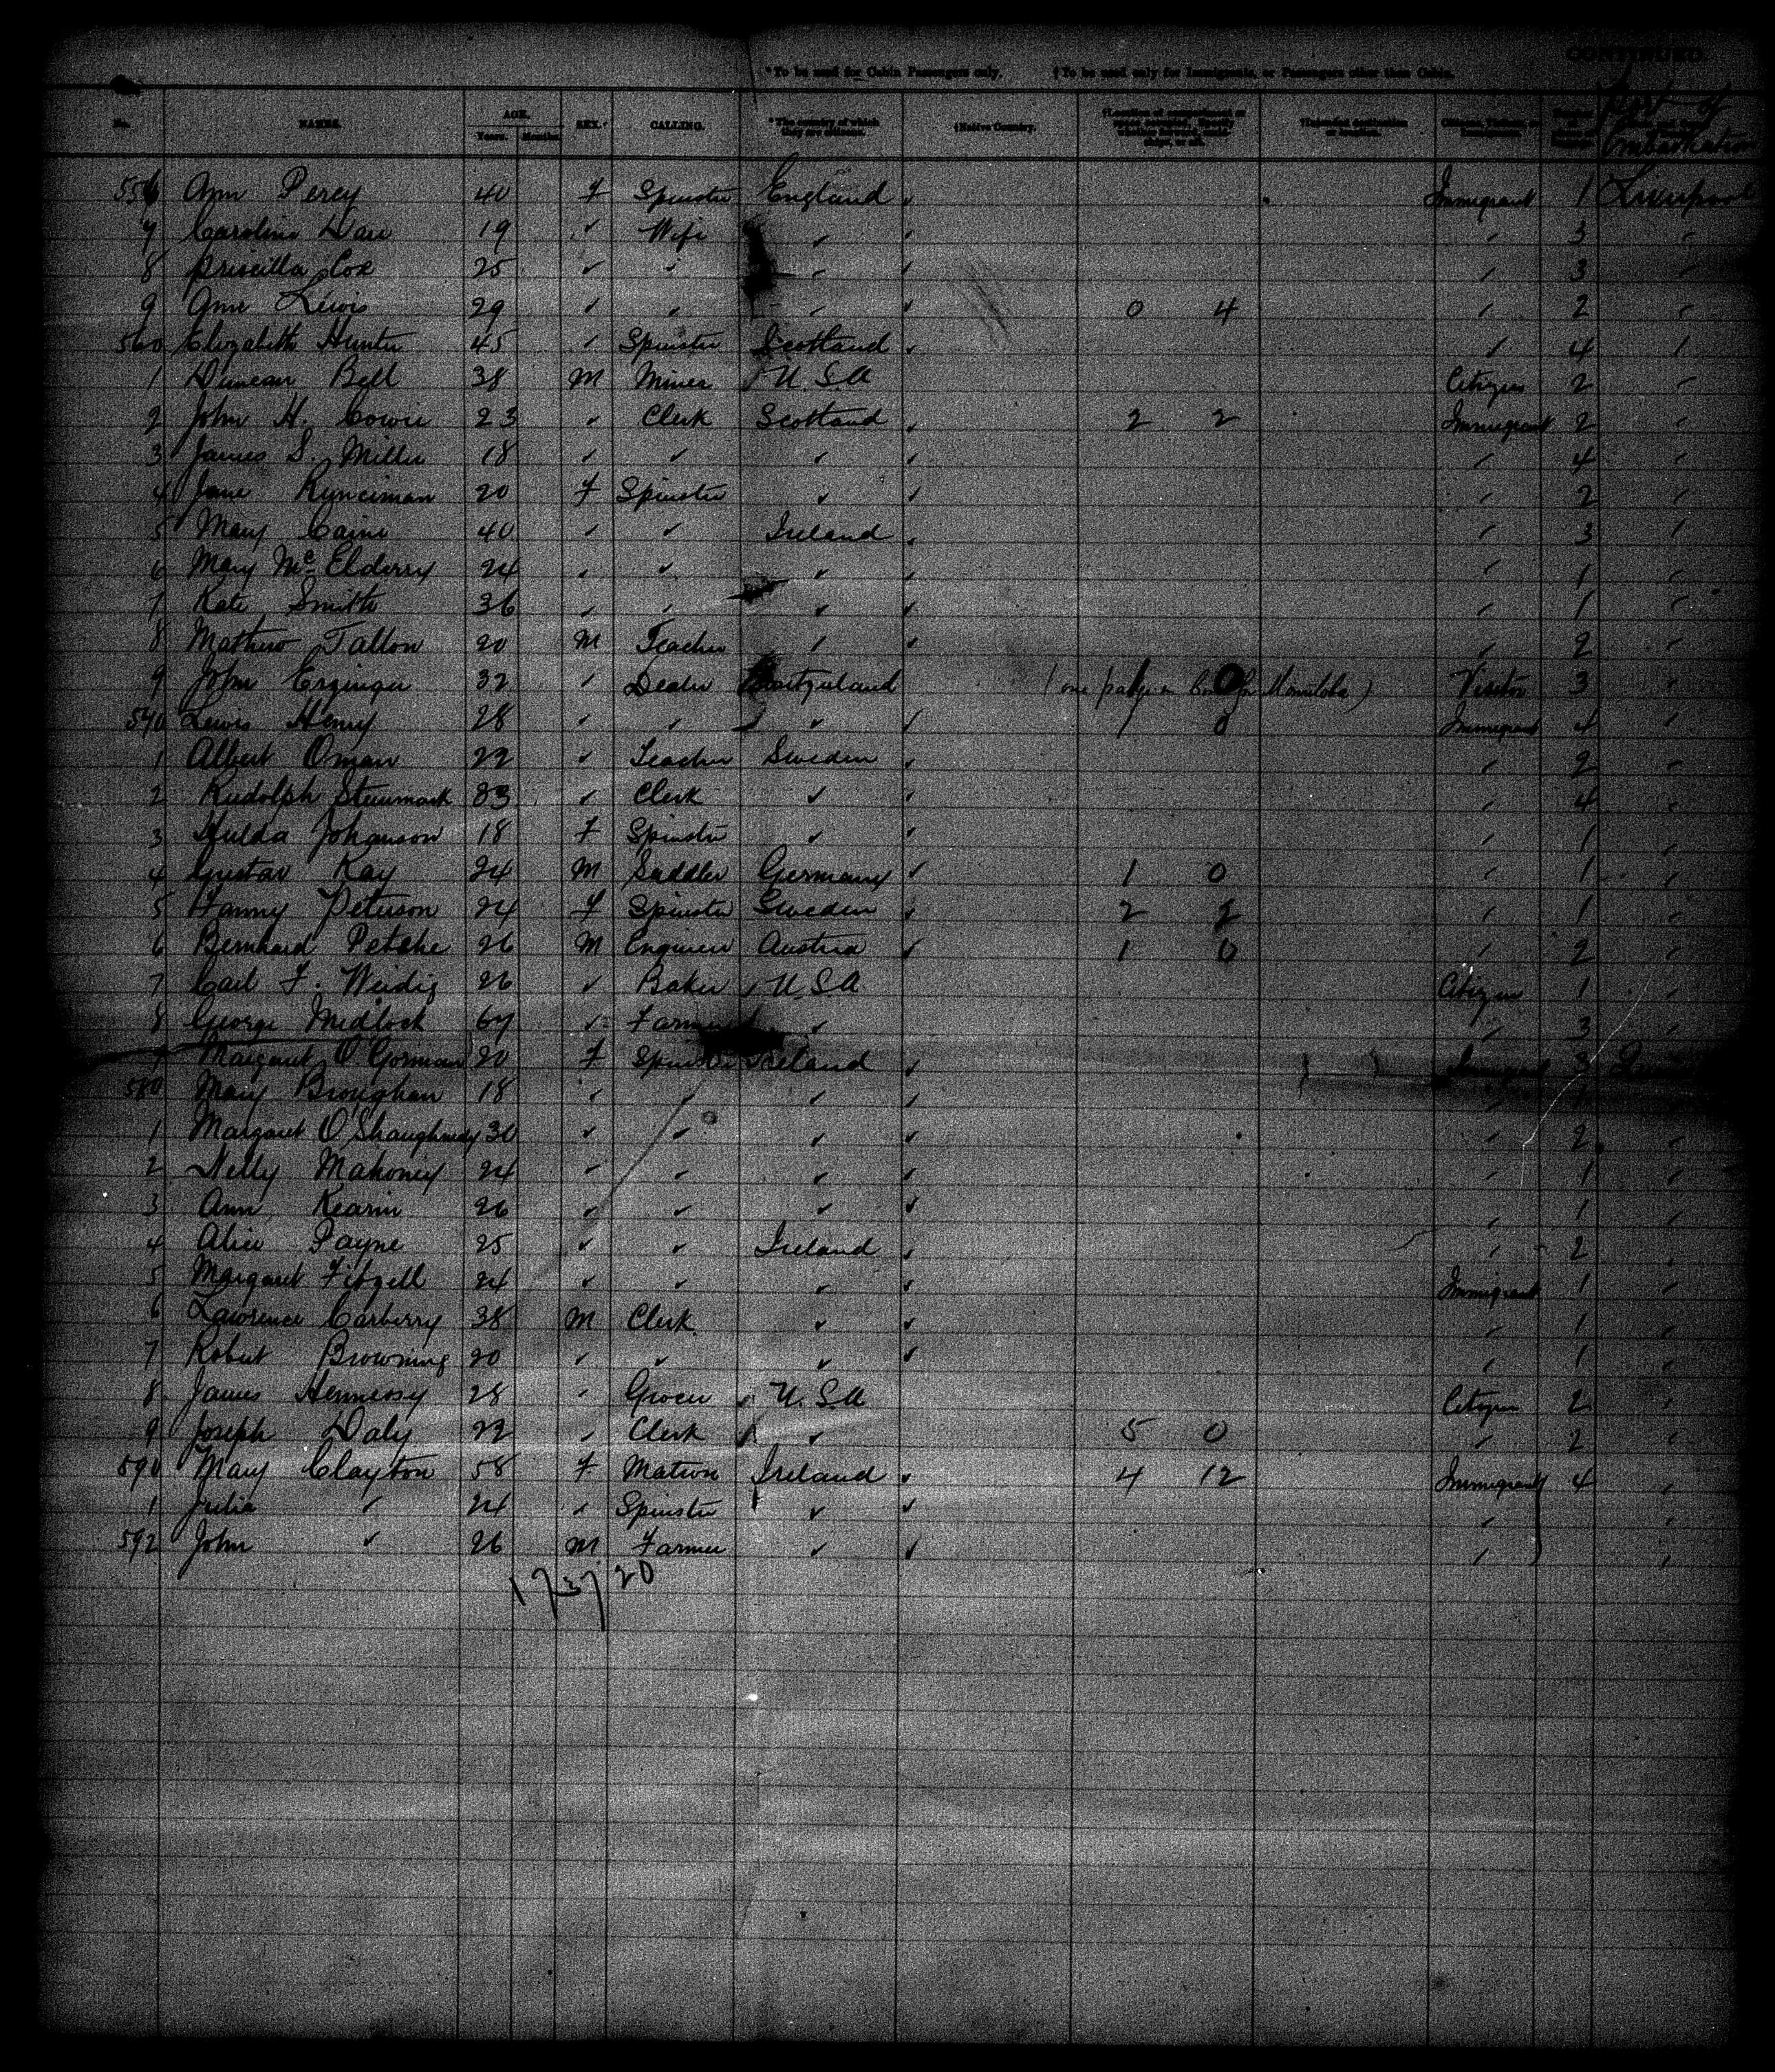 CONTINUED
*To be used for Cabin Passengers only. †To be used only for Immigrants, or Passengers other than Cabin.
Port of Embarkation
No. NAMES. AGE. Years. Months. SEX. CALLING. *The country of which they are citizens. †Native Country. †Intended destination or location.
556 Ann Percy 40 F Spinster England Immigrant 1 Liverpool
7 Caroline Dare 19 " Wife " " 3 "
8 Priscilla Cox 25 " " " " 3 "
9 Ann Lewis 29 " " " 0 4 " 2 "
560 Elizabeth Hunter 45 " Spinster Scotland " 4 "
1 Duncan Bell 38 M Miner U.S.A Citizen 2 "
2 John H. Cowie 23 " Clerk Scotland 2 2 Immigrant 2 "
3 James S. Miller 18 " " " " 4 "
4 Jane Runciman 20 F Spinster " " 2 "
5 Mary Caine 40 " " Ireland " 3 "
6 Mary McElderry 24 " " " " 1 "
7 Kate Smith 36 " " " " 1 "
8 Mathew Tallon 20 M Teacher " " 2 "
9 John Erzinger 32 " Dealer Switzerland (one Manitoba) Visitor 3 "
570 Lewis Henry 28 " " " 1 0 Immigrant 4 "
1 Albert Oman 22 " Teacher Sweden " 2 "
2 Rudolph 83 " Clerk " " 4 "
3 Hulda Johanson 18 F Spinster " " 1 "
4 Gustav Kay 24 M Saddler Germany 1 0 " 1 "
5 Fanny Peterson 24 F Spinster Sweden 2 2 " 1 "
6 Bernhard Petche 26 M Engineer Austria 1 0 " 2 "
7 Carl F. Weidig 26 " Baker U.S.A Citizen 1 "
8 George Medlock 67 " Farmer " " 3 "
9 Margaret O'Gorman 20 F Spinster Ireland Immigrant 3
580 Mary Broughan 18 " " " "
1 Margaret O'Shaughnedy 30 " " " " 2 "
2 Nelly Mahoney 24 " " " " 1 "
3 Ann Kearin 26 " " " " 1 "
4 Alice Payne 25 " " Ireland " 2 "
5 Margaret Fitzell 24 " " " Immigrant 1 "
6 Lawrence Carberry 38 M Clerk " " 1 "
7 Robert Browning 20 " " " " 1 "
8 James Hennessy 28 " Grocer U.S.A Citizen 2 "
9 Joseph Daly 22 " Clerk " 5 0 " 2 "
590 Mary Clayton 58 F Matron Ireland 4 12 Immigrant 4 "
1 Julia " 24 " Spinster " " "
592 John " 26 M Farmer " " "